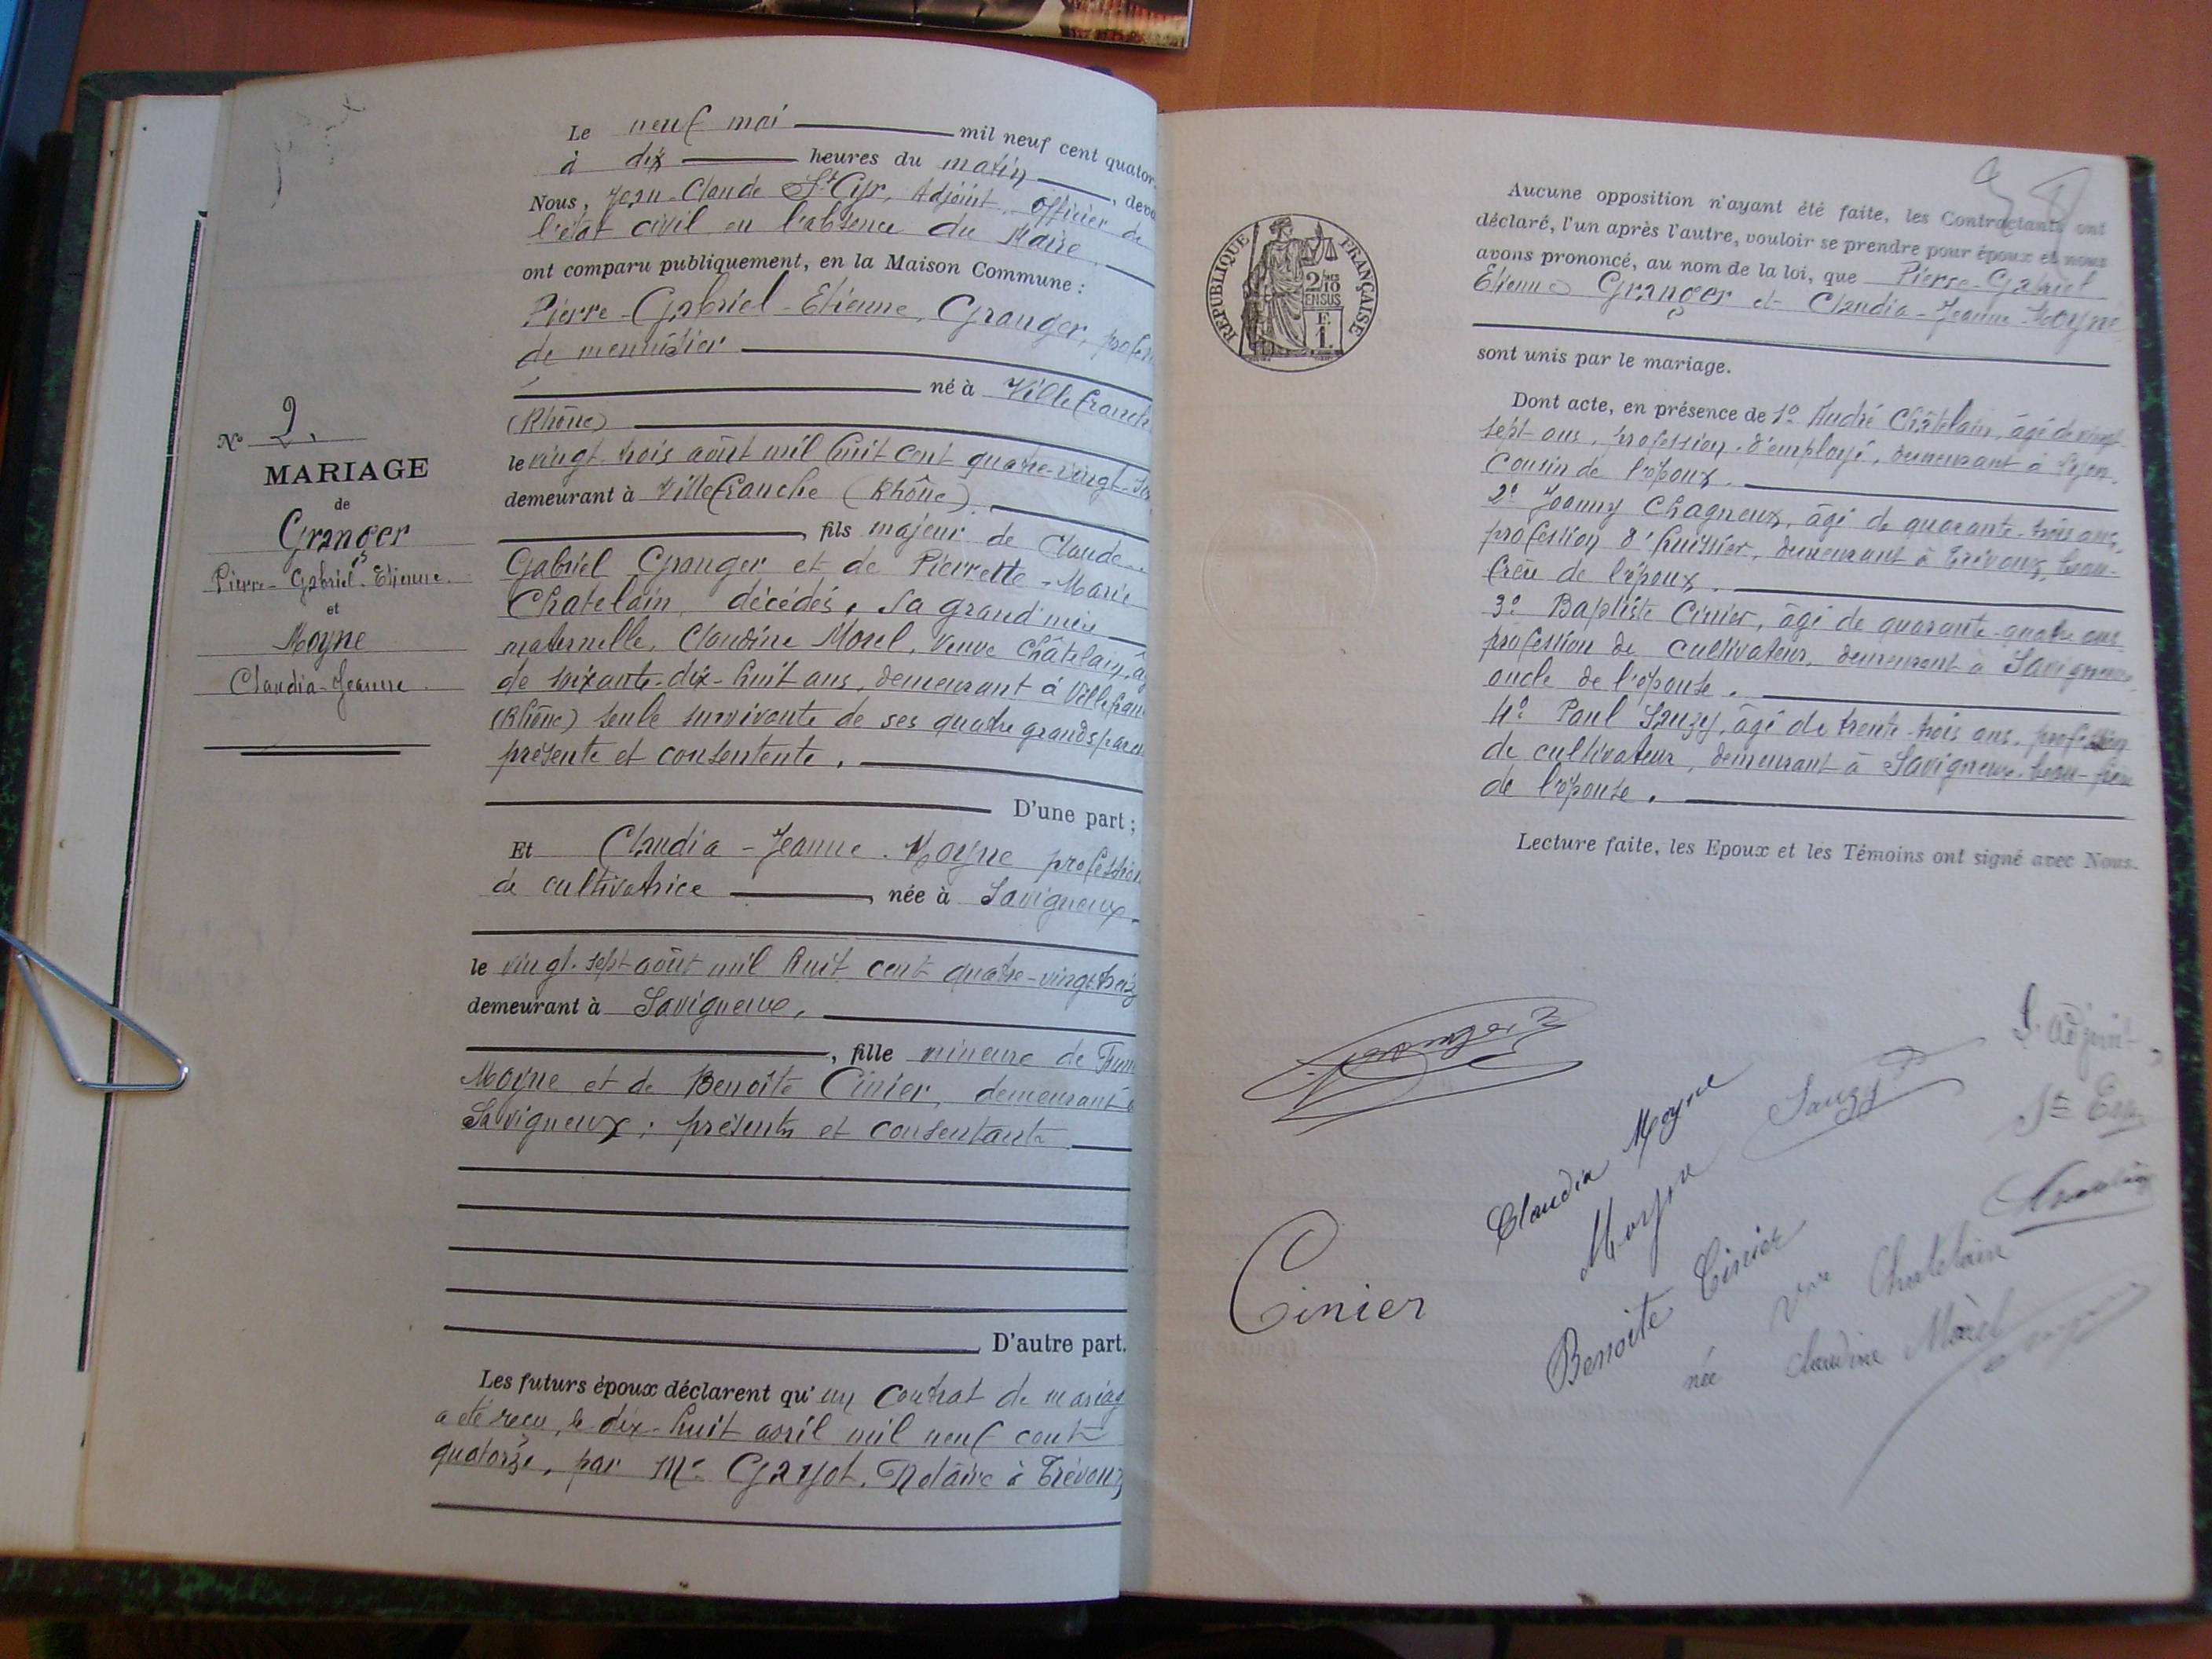 Le neuf mai mil neuf cent quator
à dix heures du matin, deva
Nous, Jean-Claude St Cyr, Adjoint, officier de
l'état civil en l'absence du Maire
ont comparu publiquement, en la Maison Commune :
Pierre-Gabriel-Etienne, Granger, profess
de menuisier
né à Villefranch
(Rhône)
le vingt-trois août mil huit cent quatre-vingt-
demeurant à Villefranche (Rhône).
fils majeur de Claude
Gabriel Granger et de Pierrette-Marie
Chatelain, décédés. Sa grand'mère
maternelle, Claudine Morel, Veuve Châtelain, âg
de soixante-dix-huit ans, demeurant à Villefran
(Rhône) seule survivante de ses quatre grands paren
présente et consentente.
D'une part ;
Et Claudia-Jeanne Moyne profession
de cultivatrice, née à Savigneux
le vingt-sept août mil huit cent quatre-vingt-treiz
demeurant à Savigneux,
, fille mineure de
Moyne et de Benoîte Cinier, demeurant à
Savigneux ; présents et consentants
D'autre part.
Les futurs époux déclarent qu'un Contrat de mariag
a été reçu, le dix-huit avril mil neuf cent
quatorze, par Me Gayot, Notaire à Trévoux
N° 2.
MARIAGE
de
Granger
Pierre-Gabriel-Etienne
et
Moyne
Claudia-Jeanne
RÉPUBLIQUE FRANÇAISE
2/10
EN SUS
F.
1.
Aucune opposition n'ayant été faite, les Contractants ont
déclaré, l'un après l'autre, vouloir se prendre pour époux et nous
avons prononcé, au nom de la loi, que Pierre-Gabriel
Etienne Granger et Claudia-Jeanne Moyne
sont unis par le mariage.
Dont acte, en présence de 1° André Châtelain, âgé de vingt
sept ans, profession d'employé, demeurant à Lyon,
Cousin de l'époux.
2° Joanny Chagneux, âgé de quarante-trois ans,
profession d'huissier, demeurant à Trévoux, beau-
frère de l'époux.
3° Baptiste Cinier, âgé de quarante-quatre ans
profession de cultivateur, demeurant à Savigneux,
oncle de l'épouse.
4° Paul Sauzy, âgé de trente-trois ans, profession
de cultivateur, demeurant à Savigneux, beau-frère
de l'épouse.
Lecture faite, les Epoux et les Témoins ont signé avec Nous.
Granger
L'adjoint
Claudia Moyne
Sauzy
St Cyr
Moyne
Cinier
Benoite Cinier
Vve Chatelain
née Claudine Morel